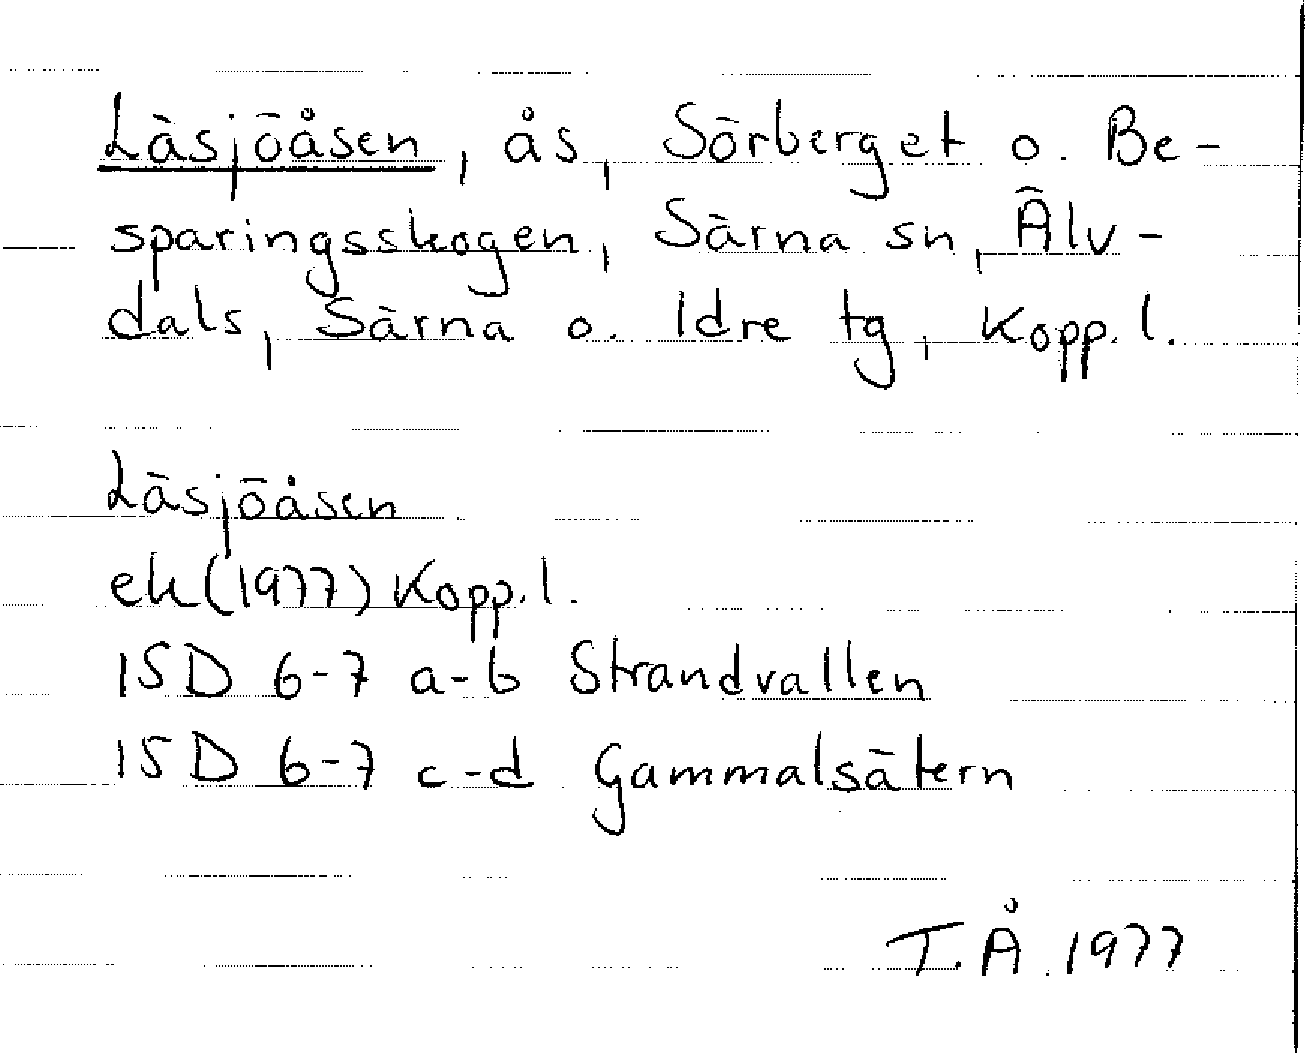 Läsjöåsen, ås, Sörberget o. Be-
sparingsskogen, Särna sn, Älv-
dals, Särna o. Idre tg, Kopp. l.
Läsjöåsen
ek (1977) Kopp. l.
15D 6-7 a-b Strandvallen
15D 6-7 c-d Gammalsätern
T. Å. 1977